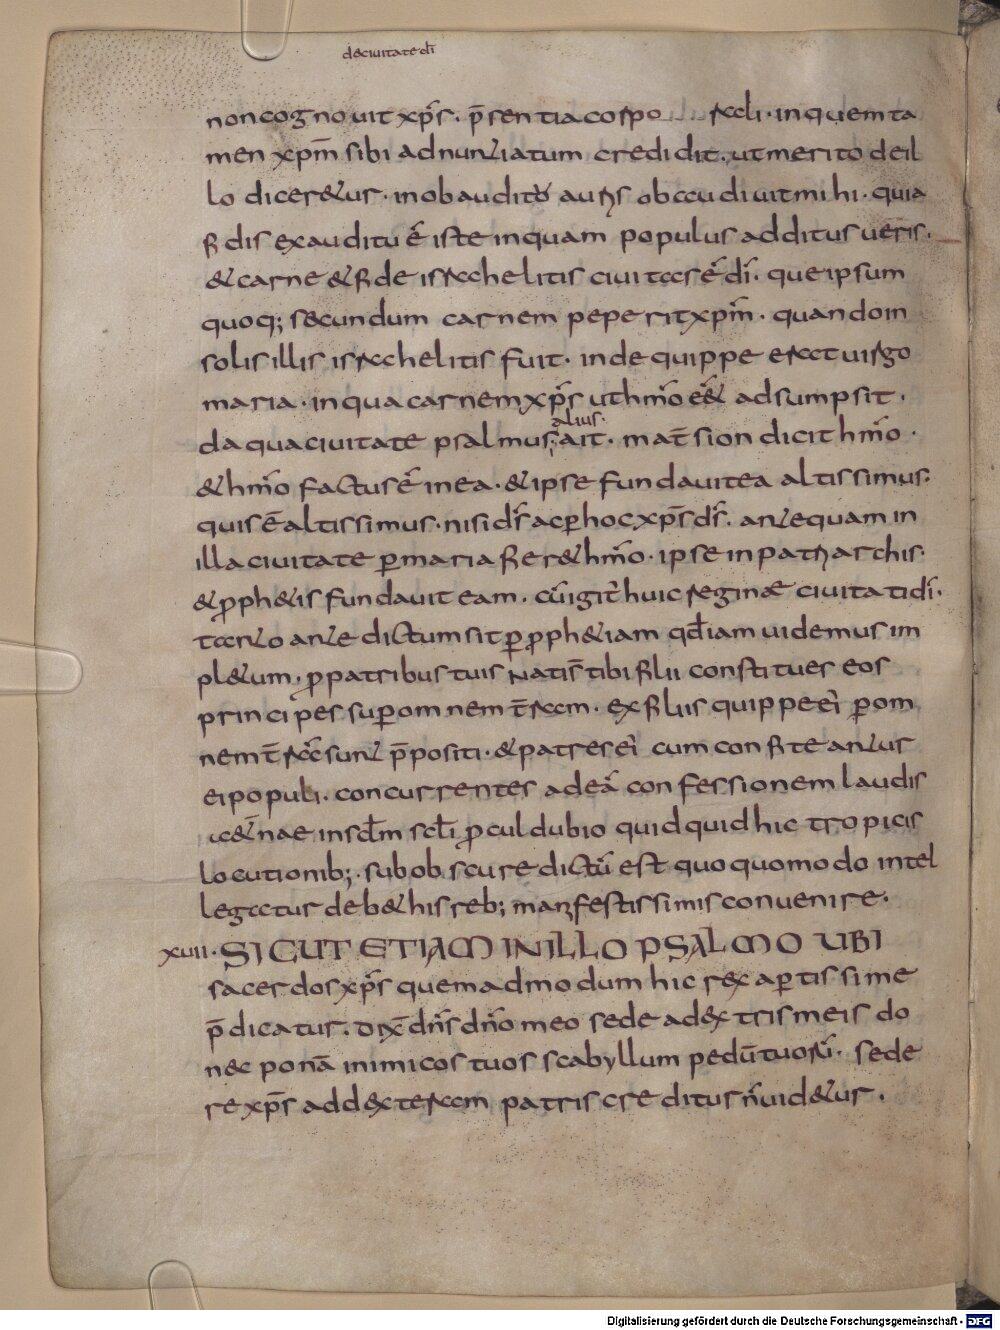 deciuitate dī
non cognouit xp̄s. p̄sentia corpo rali. in quem ta
men xpm̄ sibi adnuntiatum credidit. ut merito de il
lo diceretur. in obauditū auris obaudiuit mihi. quia
fidis ex auditu ē. iste inquam populus additus ueris.
& carne & fide israhelitis ciuitas ē dī. que ipsum
quoq; secundum carnem peperit xpm̄. quando in
solis illis israhelitis fuit. inde quippe erat uirgo
maria. in qua carnem xp̄s ut hm̄o eēt adsumpsit.
alius
da qua ciuitate psalmus; ait. mat̄ sion dicit hm̄o.
& hm̄o factus ē in ea. & ipse fundauit ea altissimus.
quis ē altissimus. nisi ds̄ ac p̄ hoc xp̄s ds̄. antequam in
illa ciuitate p̄ maria fieret hm̄o. ipse in patriarchis.
& pph&is fundauit eam. cū igit̄ huic reginæ ciuitati dī.
tanto ante dictum sit p̄ pph&iam qd̄ iam uidemus im
pl&um. p patribus tuis nati s̄ tibi filii constitues eos
principes sup̄ omnem t̄ram. ex filiis quippe ei p̄ om
nem t̄rā sunt p̄positi. & patres ei cum confiteantur
ei populi. concurrentes ad eā confessionem laudis
&nae in sclm̄ scli pcul dubio quidquid hic tropicis
locutionib; sub obscure dictū est quoquomodo intel
legatur deb& his reb; manifestissimis conuenire.
xvii. SICUT ETIAM IN ILLO PSALMO UBI
sacerdos xp̄s quemadmodum hic rex ap̄tissime
p̄dicatur. dix̄ dn̄s dn̄o meo sede ad extris meis do
nec ponā inimicos tuos scabyllum pedū tuorū. sede
re xp̄s ad dexteram patris creditur n̄ uidetur.
Digitalisierung gefördert durch die Deutsche Forschungsgemeinschaft - DFG